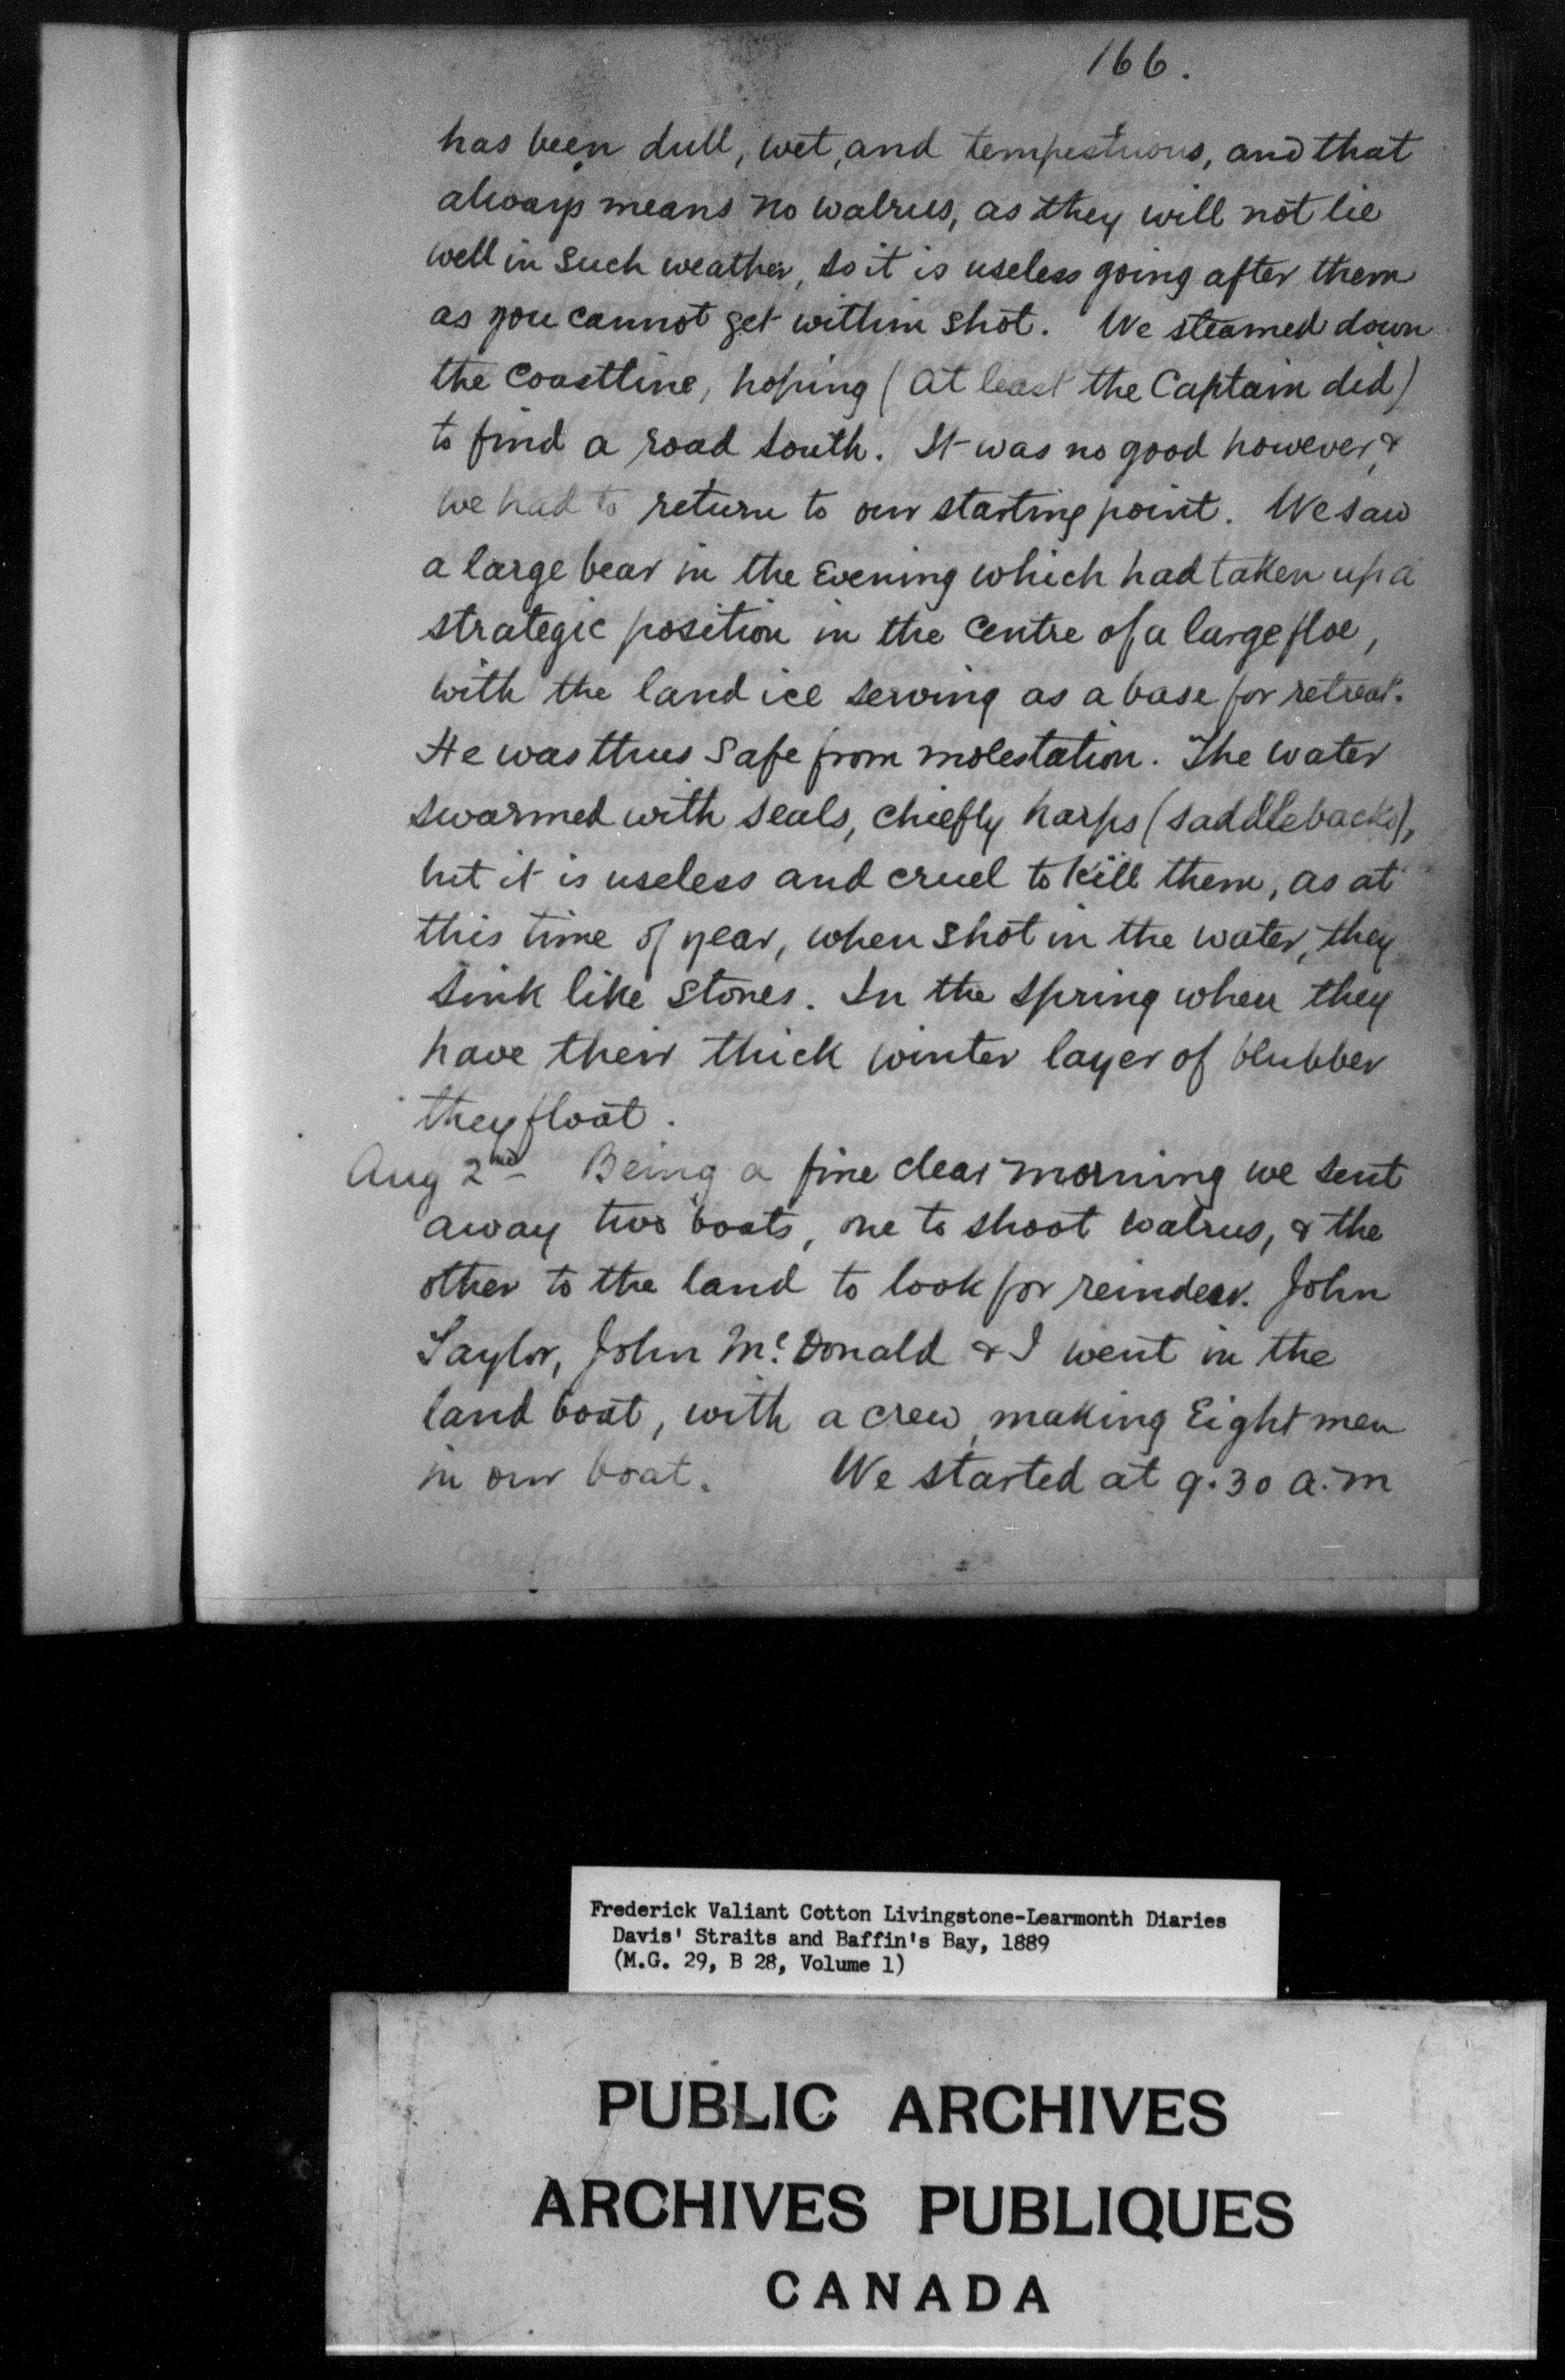 166.
has been dull, wet, and tempestuous, and that
always means no walrus, as they will not lie
well in such weather, so it is useless going after them
as you cannot get within shot. We steamed down
the coastline, hoping (at least the Captain did)
to find a road south. It was no good however, &
we had to return to our starting point. We saw
a large bear in the Evening which had taken up a
strategic position in the Centre of a large floe,
with the land ice serving as a base for retreat.
He was thus safe from molestation. The water
swarmed with seals, chiefly harps (saddlebacks),
but it is useless and cruel to kill them, as at
this time of year, when shot in the water, they
sink like stones. In the spring when they
have their thick winter layer of blubber
they float.
Aug 2nd - Being a fine clear morning we sent
away two boats, one to shoot walrus, & the
other to the land to look for reindeer. John
Taylor, John Mc. Donald & I went in the
land boat, with a crew, making Eight men
in our boat. We started at 9.30 a.m
Frederick Valiant Cotton Livingstone-Learmonth Diaries
Davis' Straits and Baffin's Bay, 1889
(M.G. 29, B 28, Volume 1)
PUBLIC ARCHIVES
ARCHIVES PUBLIQUES
CANADA